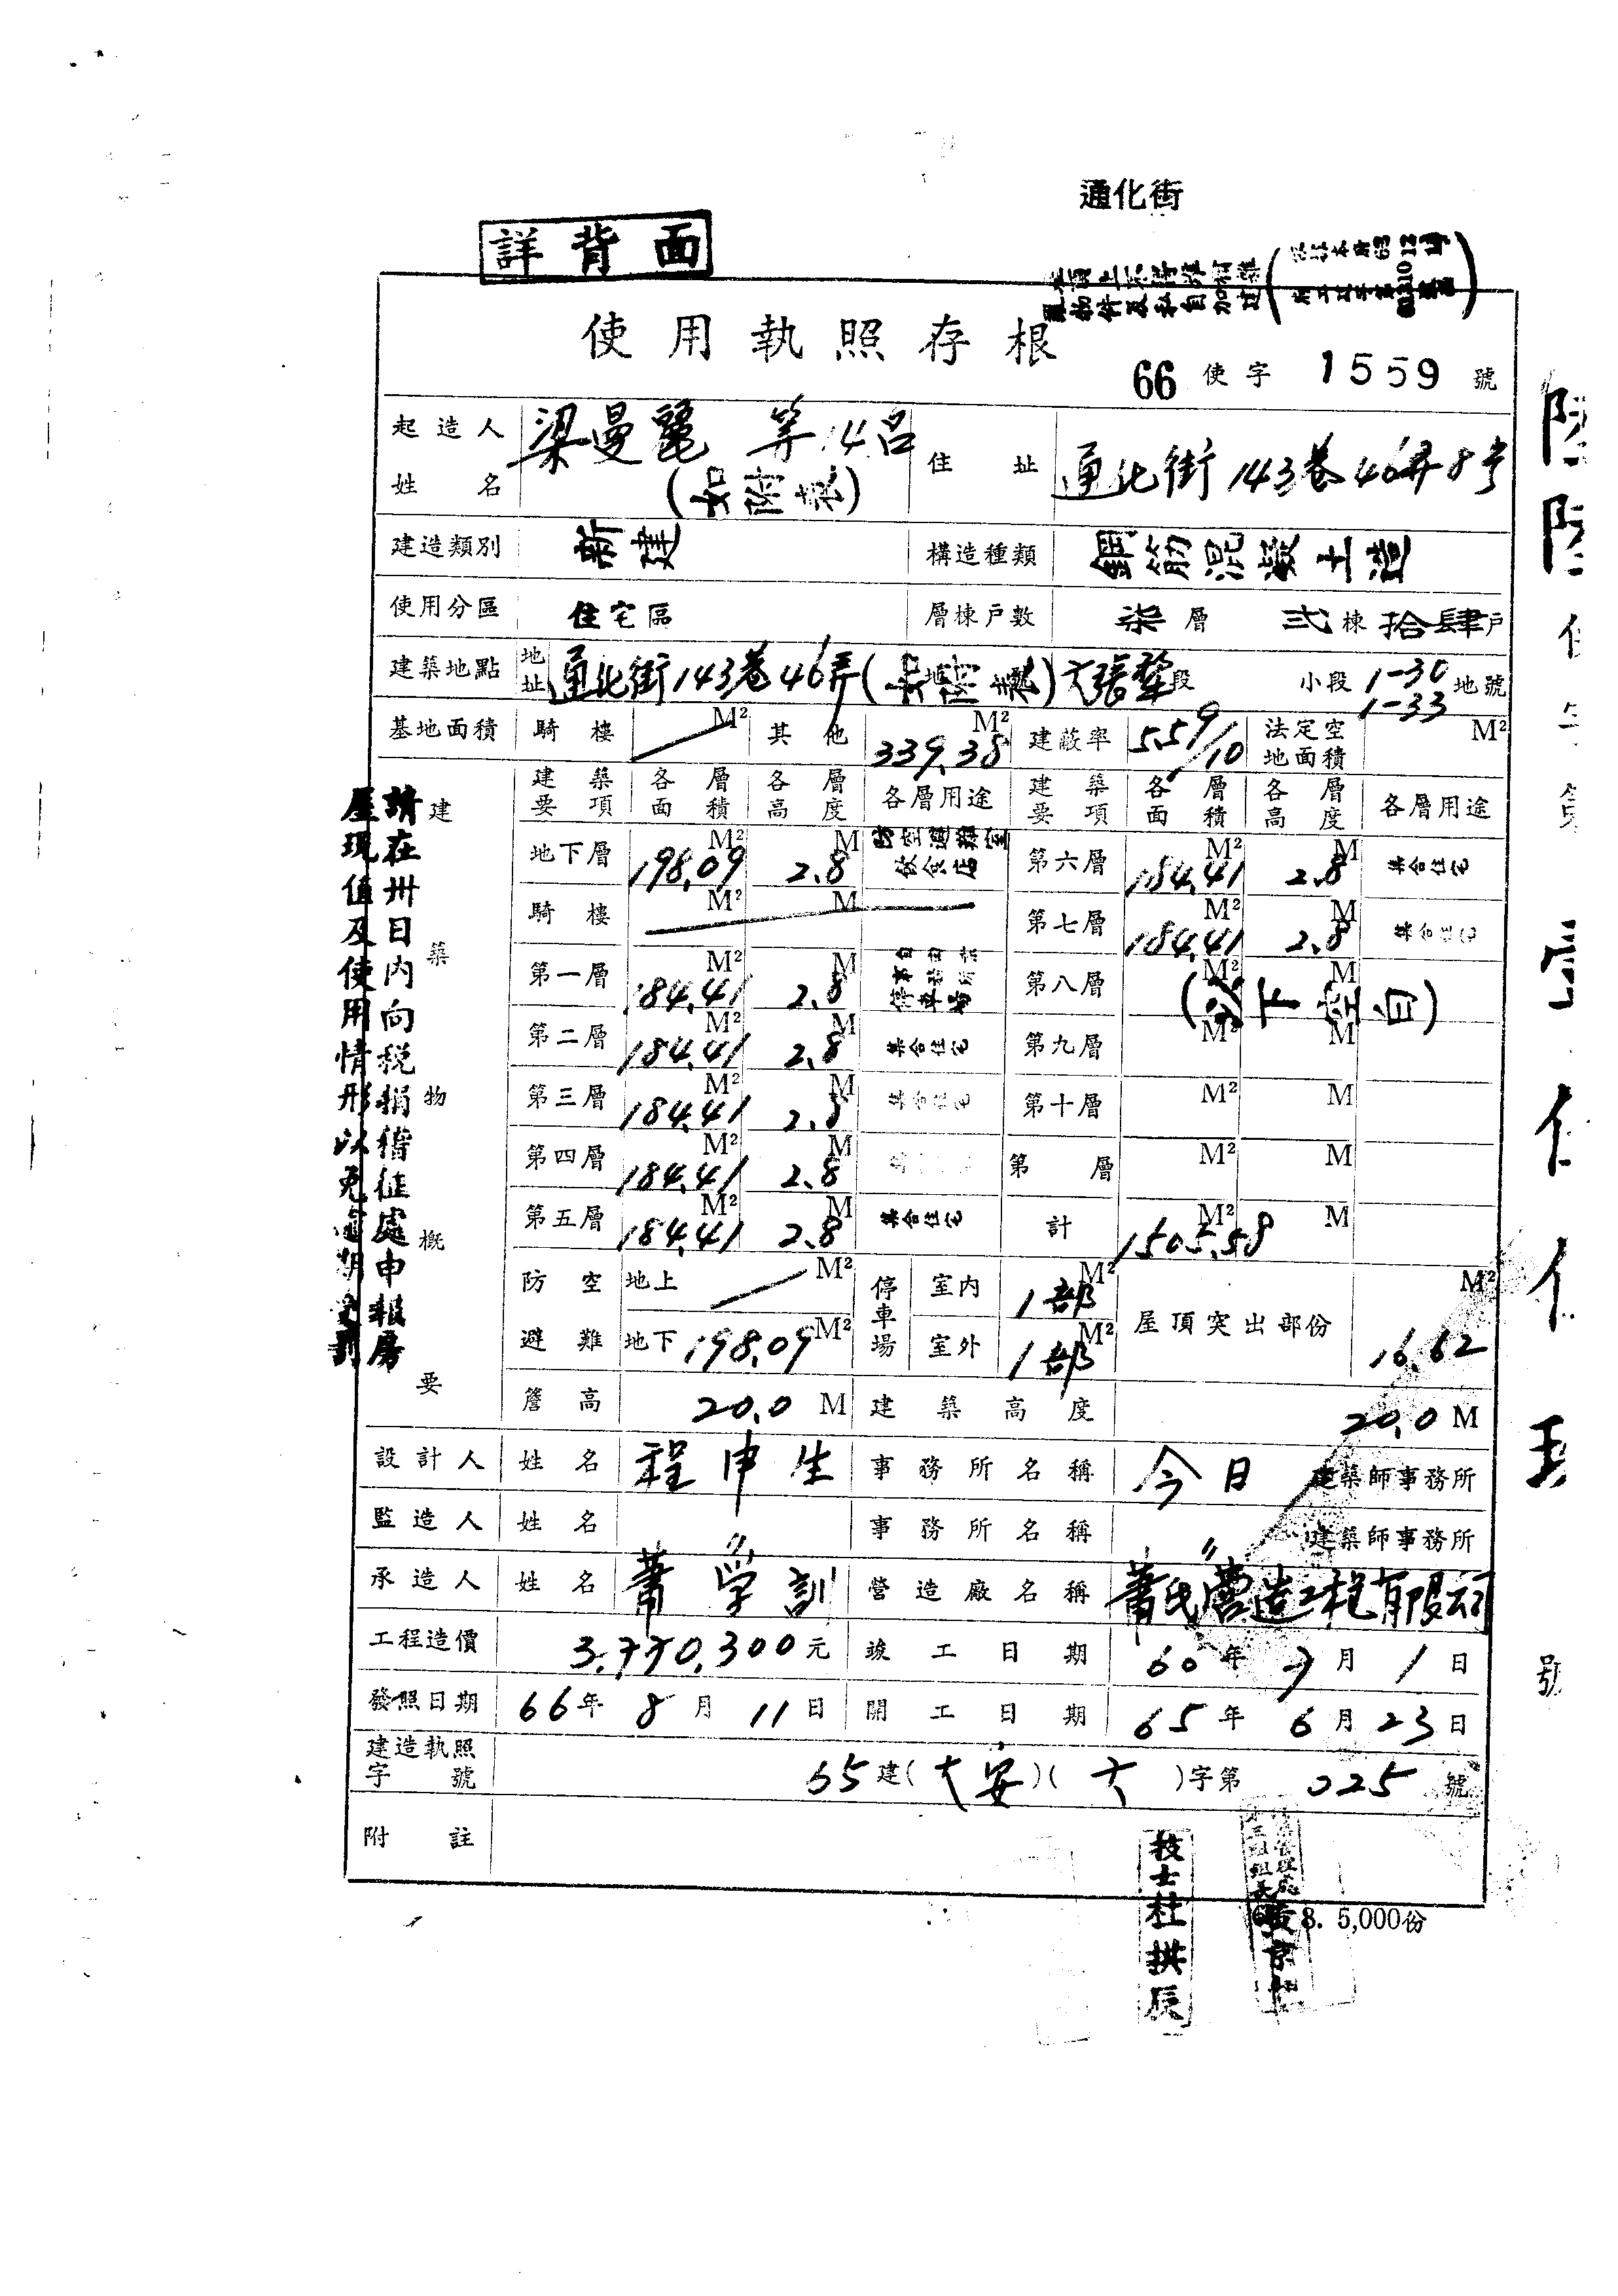 通化街
詳背面
使用執照存根
66 使字 1559 號
起造人姓名 梁曼麗 等14名 (如附表) 住址 通化街143巷46弄8号
建造類別 新建 構造種類 鋼筋混凝土造
使用分區 住宅區 層棟戶數 柒層 弍棟 拾肆戶
建築地點 地址 通化街143巷46弄 段 小段 1-30 1-33 地號
基地面積 騎樓 M² 其他 339.38 M² 建蔽率 5.59/10 法定空地面積 M²
建築物概要
建築要項 各層面積 各層高度 各層用途 建築要項 各層面積 各層高度 各層用途
地下層 198.09 M² 2.8 M 防空避難室 飲食店 第六層 184.41 M² 2.8 M 集合住宅
騎樓 M² M 第七層 184.41 M² 2.8 M 集合住宅
第一層 184.41 M² 2.8 M 第八層 M² M (以下空白)
第二層 184.41 M² 2.8 M 集合住宅 第九層 M² M
第三層 184.41 M² 2.8 M 集合住宅 第十層 M² M
第四層 184.41 M² 2.8 M 第 層 M² M
第五層 184.41 M² 2.8 M 集合住宅 計 1505.58 M² M
防空避難 地上 M² 停車場 室內 1部 M² 屋頂突出部份 16.62 M²
地下 198.09 M² 室外 1部 M²
簷高 20.0 M 建築高度 20.0 M
設計人 姓名 程申生 事務所名稱 今日 建築師事務所
監造人 姓名 〃 事務所名稱 〃 建築師事務所
承造人 姓名 蕭学訓 營造廠名稱 蕭氏營造工程有限公司
工程造價 3,770,300元 竣工日期 66年 7月 1日
發照日期 66年 8月 11日 開工日期 65年 6月 23日
建造執照字號 65建(大安)(六)字第 025 號
附註
請在卅日內向稅捐稽征處申報房
屋現值及使用情形以免逾期受罰
技士杜拱辰
8. 5,000份
號